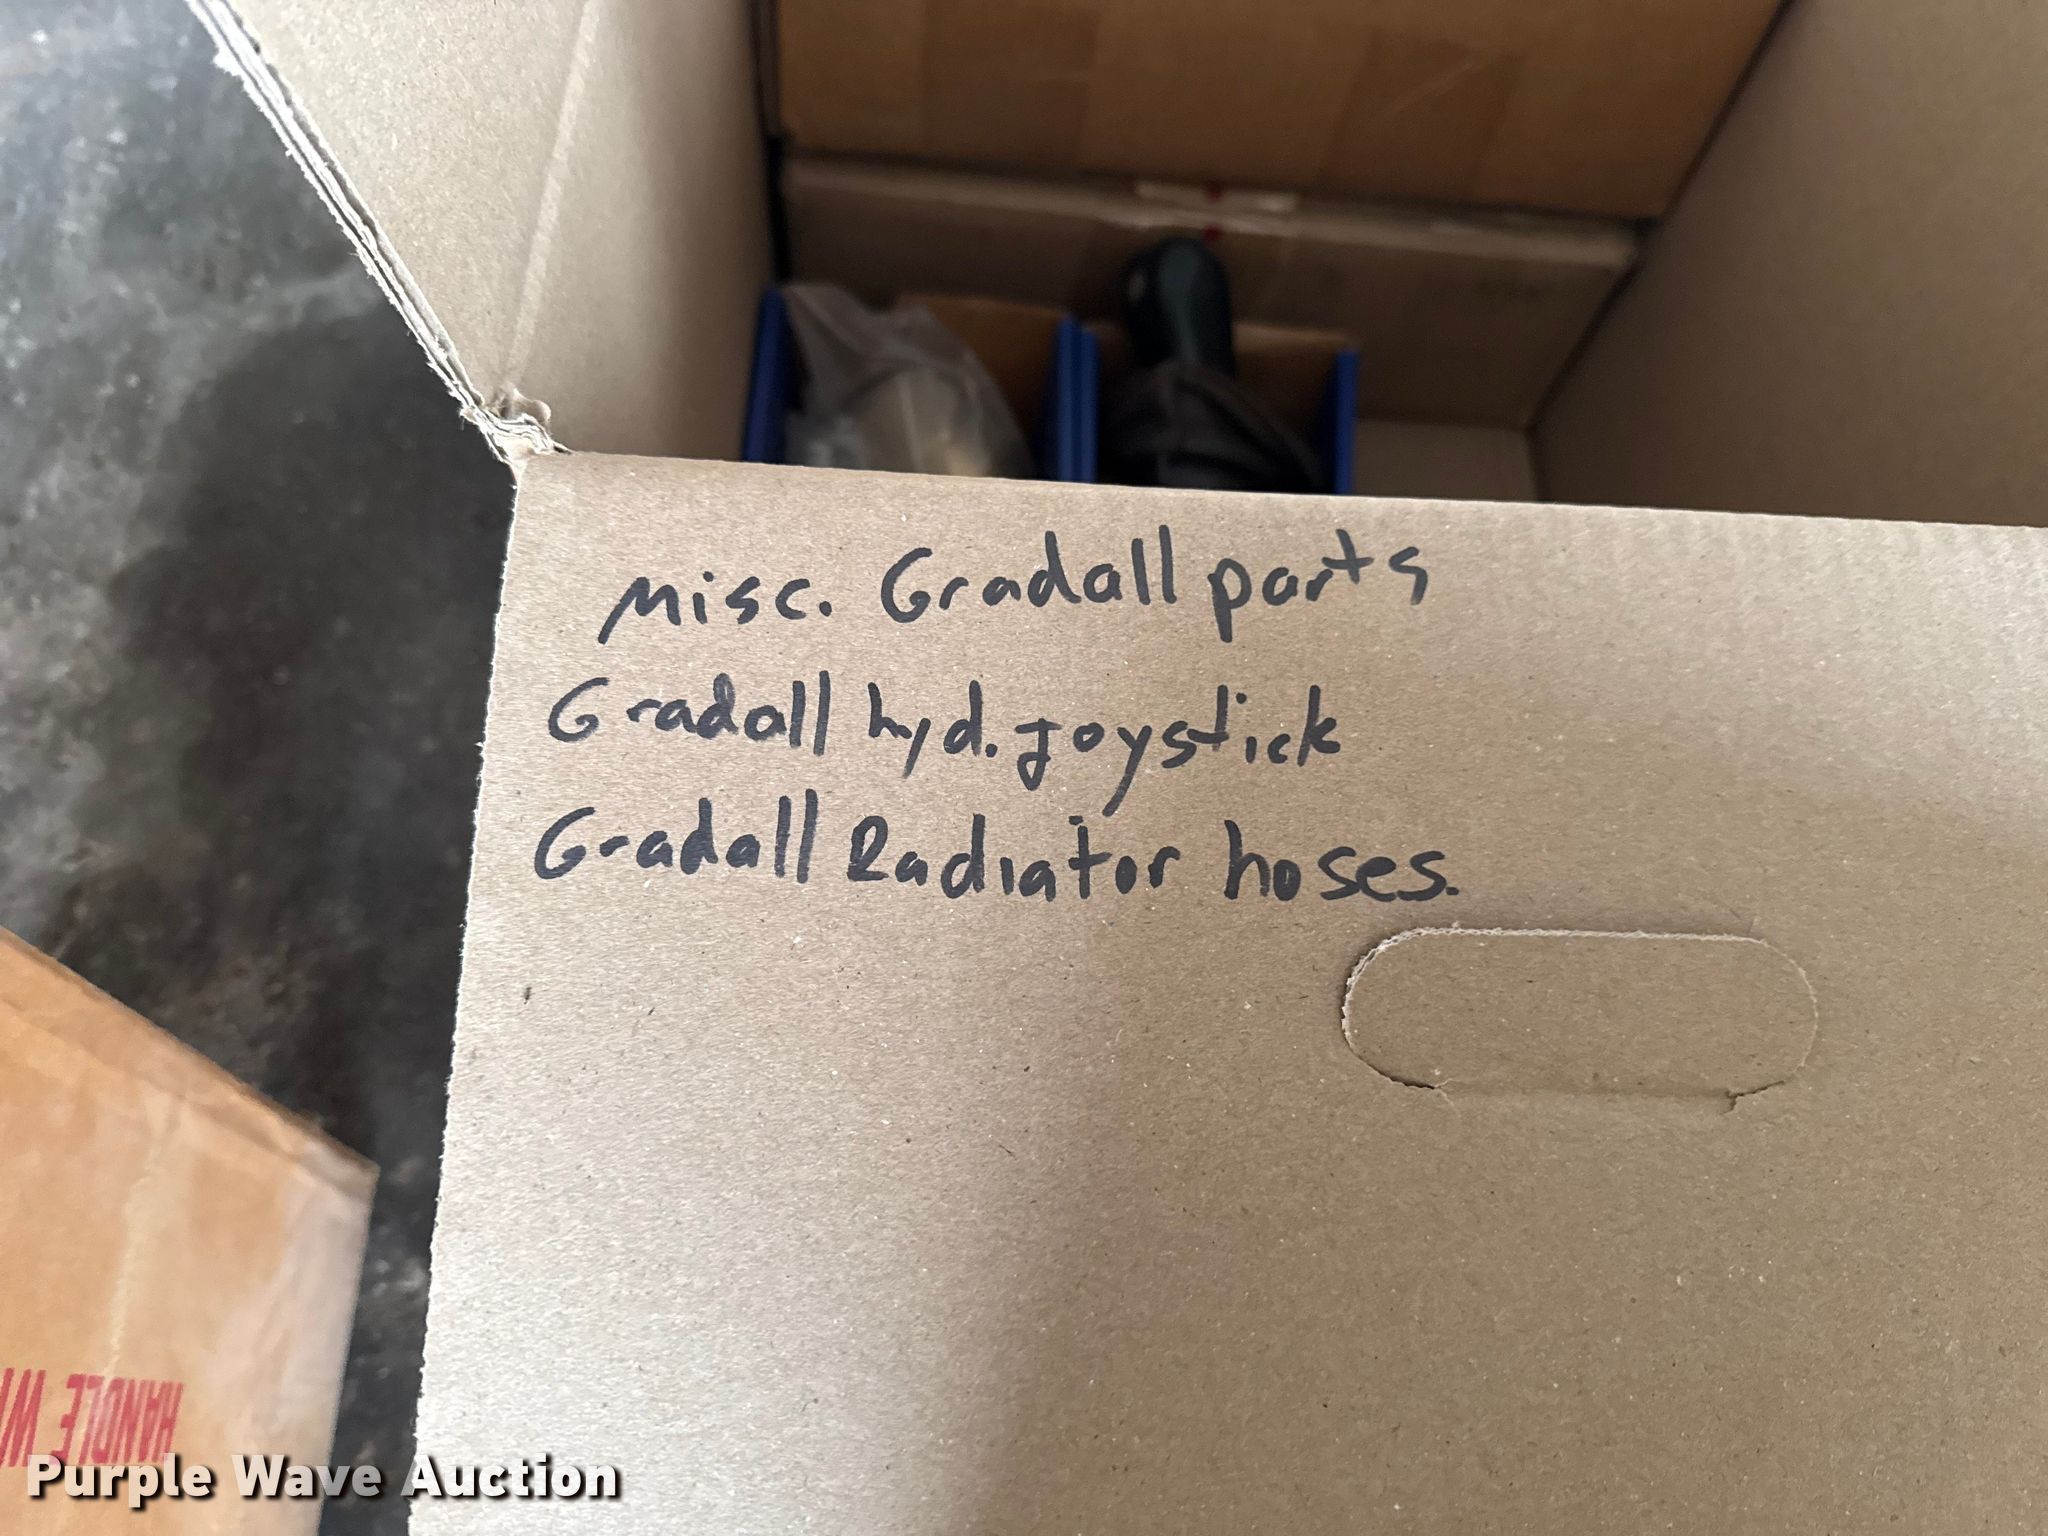 Misc. Gradall parts
Gradall hyd. Joystick
Gradall Radiator hoses.
HANDLE WI
Purple Wave Auction